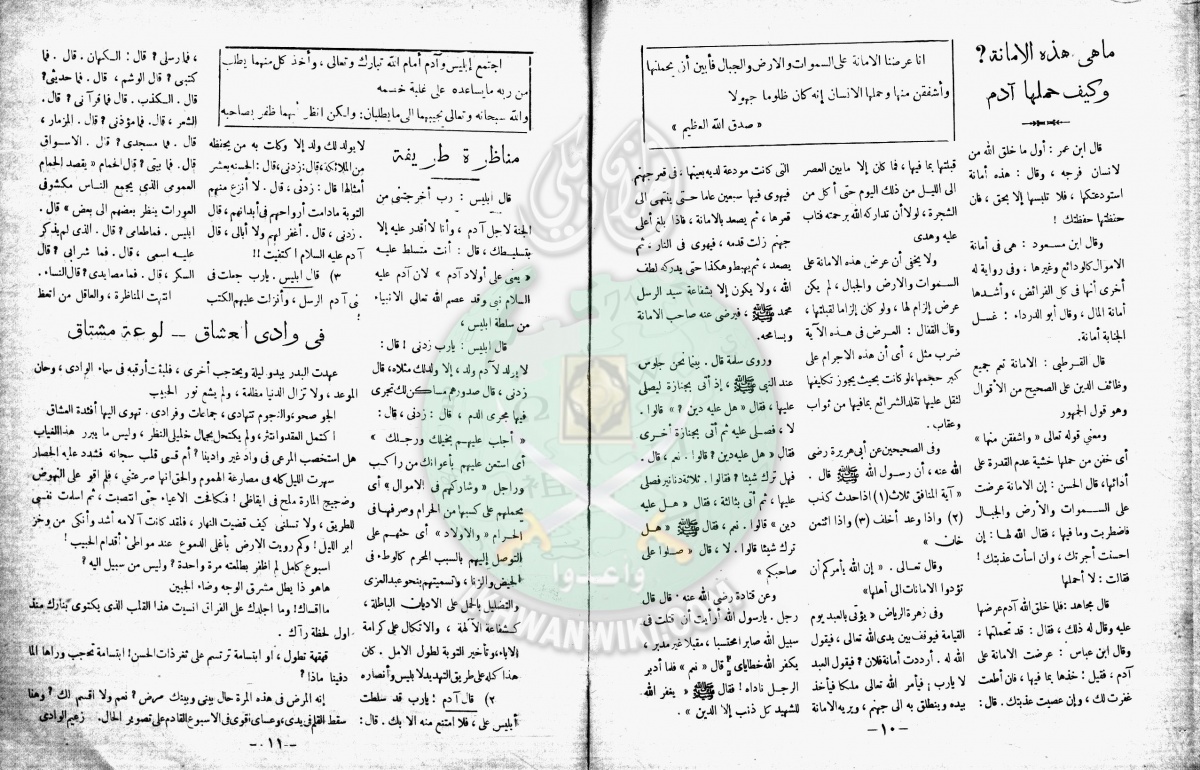 ماهى هذه الامانة؟
وكيف حملها آدم
قال ابن عمر : أول ما خلق الله من
لانسان فرجه ، وقال : هذه أمانة
استودعتكها ، فلا تلبسها إلا بحق ، فان
حفظتها حفظتك !
وقال ابن مسعود : هى فى أمانة
الاموال كالودائع وغيرها ، وفى رواية له
أخرى أنها فى كل الفرائض ، وأشدها
أمانة المال ، وقال أبو الدرداء : غسل
الجنابة أمانة.
قال القرطبى : الامانة تعم جميع
وظائف الدين على الصحيح من الأقوال
وهو قول الجمهور
ومعنى قوله تعالى « واشفقن منها »
أى خفن من حملها خشية عدم القدرة على
أدائها، قال الحسن : إن الامانة عرضت
على السموات والأرض والجبال
فاضطربت وما فيها ، فقال الله لها : إن
احسنت أجرتك ، وان اسأت عذبتك !
فقالت : لا أحملها
قال مجاهد : فلما خلق الله آدم عرضها
عليه وقال له ذلك ، فقال : قد تحملتها ،
وقال ابن عباس : عرضت الامانة على
آدم ، فقيل : خذها بما فيها ، فان أطعت
غفرت لك ، وإن عصيت عذبتك . قال :
انا عرضنا الامانة على السموات والارض والجبال فأبين أن يحملنها
وأشفقن منها وحملها الانسان إنه كان ظلوما جهولا
« صدق الله العظيم »
قبلتها بما فيها ، فما كان إلا مابين العصر
الى الليل من ذلك اليوم حتى أكل من
الشجرة ، لولا أن تداركه الله برحمته فتاب
عليه وهدى
ولا يخفى أن عرض هذه الامانة على
السموات والارض والجبال ، لم يكن
عرض إلزام لها ، ولو كان إلزاما لقبلتها ،
وقال القفال : العرض فى هذه الآية
ضرب مثل ، أى أن هذه الاجرام على
كبر حجمها ،لو كانت بحيث يجوز تكليفها
لثقل عليها تقلد الشرائع بما فيها من ثواب
وعقاب .
وفى الصحيحين عن أبى هريرة رضى
الله عنه ، أن رسول الله ﷺ قال .
« آية المنافق ثلاث (١) اذا حدث كذب
(٢) واذا وعد أخلف (٣) واذا ائتمن
خان »
وقال تعالى . « إن الله يأمركم أن
تؤدوا الامانات الى أهلها»
وفى زهرة الرياض « يؤتى بالعبد يوم
القيامة فيوقف بين يدى الله تعالى ، فيقول
الله له . أرددت أمانة فلان ؟ فيقول العبد
لا يارب ؛ فيأمر الله تعالى ملكا فيأخذ
بيده وينطلق به الى جهنم ، ويريه الامانة
التى كانت مودعة لديه بعينها ، فى قعر جهنم
فيهوى فيها سبعين عاما حتى ينتهى الى
قعرها ، ثم يصعد بالامانة ، فاذا بلغ أعلى
جهنم زلت قدمه ، فيهوى فى النار ، ثم
يصعد ، ثم يهبط وهكذا حتى يدركه لطف
الله ، ولا يكون إلا بشفاعة سيد الرسل
محمد ﷺ ، فيرضى عنه صاحب الامانة
ويسامحه.
وروى سلمة قال . بينا نحن جلوس
عند النبى ﷺ ، إذ أتى بجنازة ليصلى
عليها ، فقال « هل عليه دين ؟ » قالوا .
لا ، فصلى عليه ثم أتى بجنازة أخرى
فقال « هل عليه دين ؟ قالوا . نعم ، قال .
فهل ترك شيئا ؟ فقالوا . ثلاثة دنانير فصلى
عليها ، ثم أتى بثالثة ، فقال « هل عليه
دين » قالوا . نعم ، فقال ﷺ « هل
ترك شيئا قالوا . لا ، قال « صلوا على
صاحبكم »
وعن قتادة رضى الله عنه . قال قال
رجل . يارسول الله أرأيت أن قتلت فى
سبيل الله صابرا محتسبا ، مقبلا غير مدبر ،
يكفر الله خطاياى ؟ قال « نعم » فلما أدبر
الرجل ناداه ! فقال ﷺ « يغفر الله
للشهيد كل ذنب إلا الدين » .
— ١٠ —
اجتمع إبليس وآدم أمام الله تبارك وتعالى ، وأخذ كل منهما يطلب
من ربه مايساعده على غلبة خصمه
والله سبحانه وتعالى يجيبهما الى مايطلبان: ولكن انظر أيهما ظفر بصاحبه
مناظرة طريفة
قال ابليس : رب أخرجتنى من
الجنة لاجل آدم ، وأنا لا أقدر عليه إلا
بتسليطك ، قال : أنت متسلط عليه
« يعنى على أولاد آدم » لان آدم عليه
السلام نبى وقد عصم الله تعالى الانبياء
من سلطة ابليس ،
قال ابليس : يارب زدنى ! قال :
لايولد لآدم ولد ، إلا ولدلك مثلاه، قال
زدنى ، قال صدورهم مساكن لك تجرى
فيها مجرى الدم ، قال : زدنى ، قال :
« أجلب عليهم بخيلك ورجلك »
أى استعن عليهم بأعوانك من راكب
وراجل « وشاركهم فى الاموال » أى
بحملهم على كسبها من الحرام وصرفها فى
الحرام « والاولاد » أى حثهم على
التوصل إليهم بالسبب المحرم كالوطء فى
الحيض والزنا ، وتسميتهم بنحو عبد العزى
والتضليل بالحمل على الاديان الباطلة ،
كشفاعة الآلهة ، والاتكال على كرامة
الاباء، وتأخير التوبة لطول الامل . كان
هذا كله على طريق التهديد لابليس وأنصاره
٢) قال آدم : يارب قد سلطت
أبليس على ، فلا امتنع منه الا بك . قال :
لايولد لك ولد إلا وكلت به من يحفظه
من الملائكة، قال: زدنى، قال : الحسنه بعشر
أمثالها قال : زدنى ، قال . لا أنزع منهم
التوبة مادامت أرواحهم فى أبدانهم ، قال
. زدنى ، قال . أغفر لهم ولا أبالى ، قال
آدم عليه السلام اكتفيت !!
٣) قال ابليس . يارب جعلت فى
بنى آدم الرسل ، وأنزلت عليهم الكتب
، فما رسلى ؟ قال : الكهان . قال . فما
كتبى ؟ قال الوشم ، قال . فما حديثى؟
قال . الكذب . قال فما قرآنى ؟ قال .
الشعر ، قال. فما مؤذنى ؟ قال . المزمار ،
قال . فما مسجدى ؟ قال . الاسواق
قال . فما بيتى ؟ قال الحمام « يقصد الحمام
العمومى الذى يجمع الناس مكشوفى
العورات ينظر بعضهم الى بعض » قال .
ابليس . فماطعامى ؟ قال . الذى لم يذكر
عليه اسمى ، قال . فما شرابى ؟ قال
السكر ، قال . فما مصايدى؟ قال النساء .
انتهت المناظرة ، والعاقل من اتعظ
فى وادى العشاق — لوعة مشتاق
عهدت البدر يبدو ليلة ويحتجب أخرى ، فلبثت أرقبه فى سماء الوادى ، وحان
الموعد ، ولا تزال الدنيا مظلمة ، ولم يشع نور الحبيب
الجو صحو، والنجوم تتهادى ، جماعات وفرادى . تهوى اليها أفئدة العشاق
اكتمل العقد وانتثر، ولم يكتحل بجمال خليلى النظر ، وليس ما يبرر هذا الغياب
هل استخصب المرعى فى واد غير وادينا ؟ أم قسى قلب سجانه فشدد عليه الحصار
سهرت الليل كله فى مصارعة الهموم والحق انها صرعتنى ، فلم اقو على النهوض
وضجيج المارة ملح فى ايقاظى ! فكافحت الاعياء حتى انتصبت ، ثم اسلمت نفسى
للطريق ، ولا تسلنى كيف قضيت النهار ، فلقد كانت آلامه أشد وأنكى من وخز
ابر الليل ! وكم رويت الارض بأغلى الدموع عند مواطىء أقدام الحبيب !
اسبوع كامل لم اظفر بطلعته مرة واحدة ؟ وليس من سبيل اليه ؟
هاهو ذا يطل مشرق الوجه وضاء الجبين
مااقساك ! وما اجلدك على الفراق انسيت هذا القلب الذى يكتوى بنارك منذ
اول لحظة رآك .
قهقهة تطول ، او ابتسامة ترتسم على ثغرذات الحسن! ابتسامة تحجب وراها الما
دفينا ماذا ؟
إنه المرض فى هذه المرة حال بينى وبينك مرض ؟ نعم ولا اقسم لك ؟ وهنا
سقط القلم فى يدى، وعساى أقوى فى الاسبوع القادم على تصوير الحال. زعيم الوادى
— ١١ —
وأعدوا
IKHWANWIKI.COM